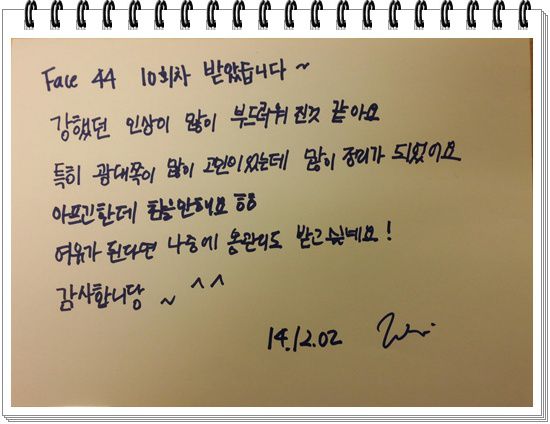 Face 44 10회차 받았습니다~
강했던 인상이 많이 부드러워 진것 같아요
특히 광대쪽이 많이 고민이었는데 많이 정리가 되었어요
아프긴한데 참을만해요 ㅎㅎ
여유가 된다면 나중에 몸관리도 받고싶네요!
감사합니당 ~ ^^
14.12.02